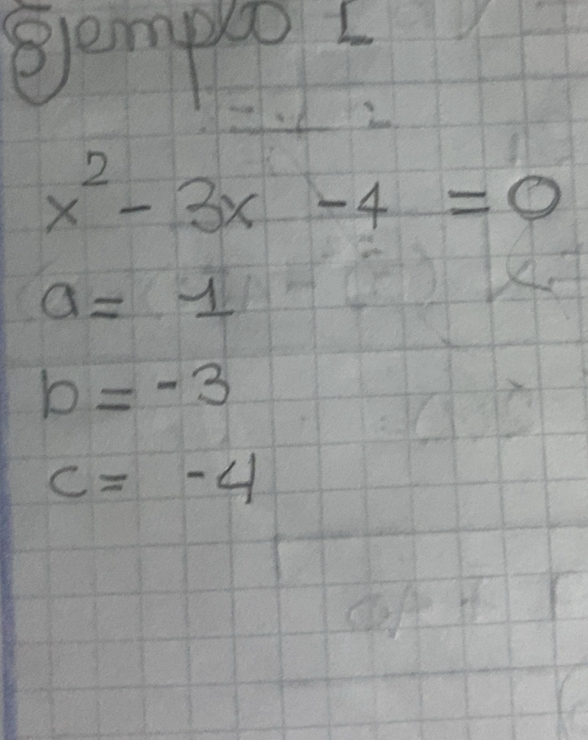 Ejemplo 1
x² - 3x - 4 = 0
a = 1
b = -3
c = -4